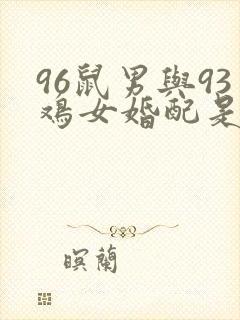 96鼠男與93
鸡女婚配是
暝蘭